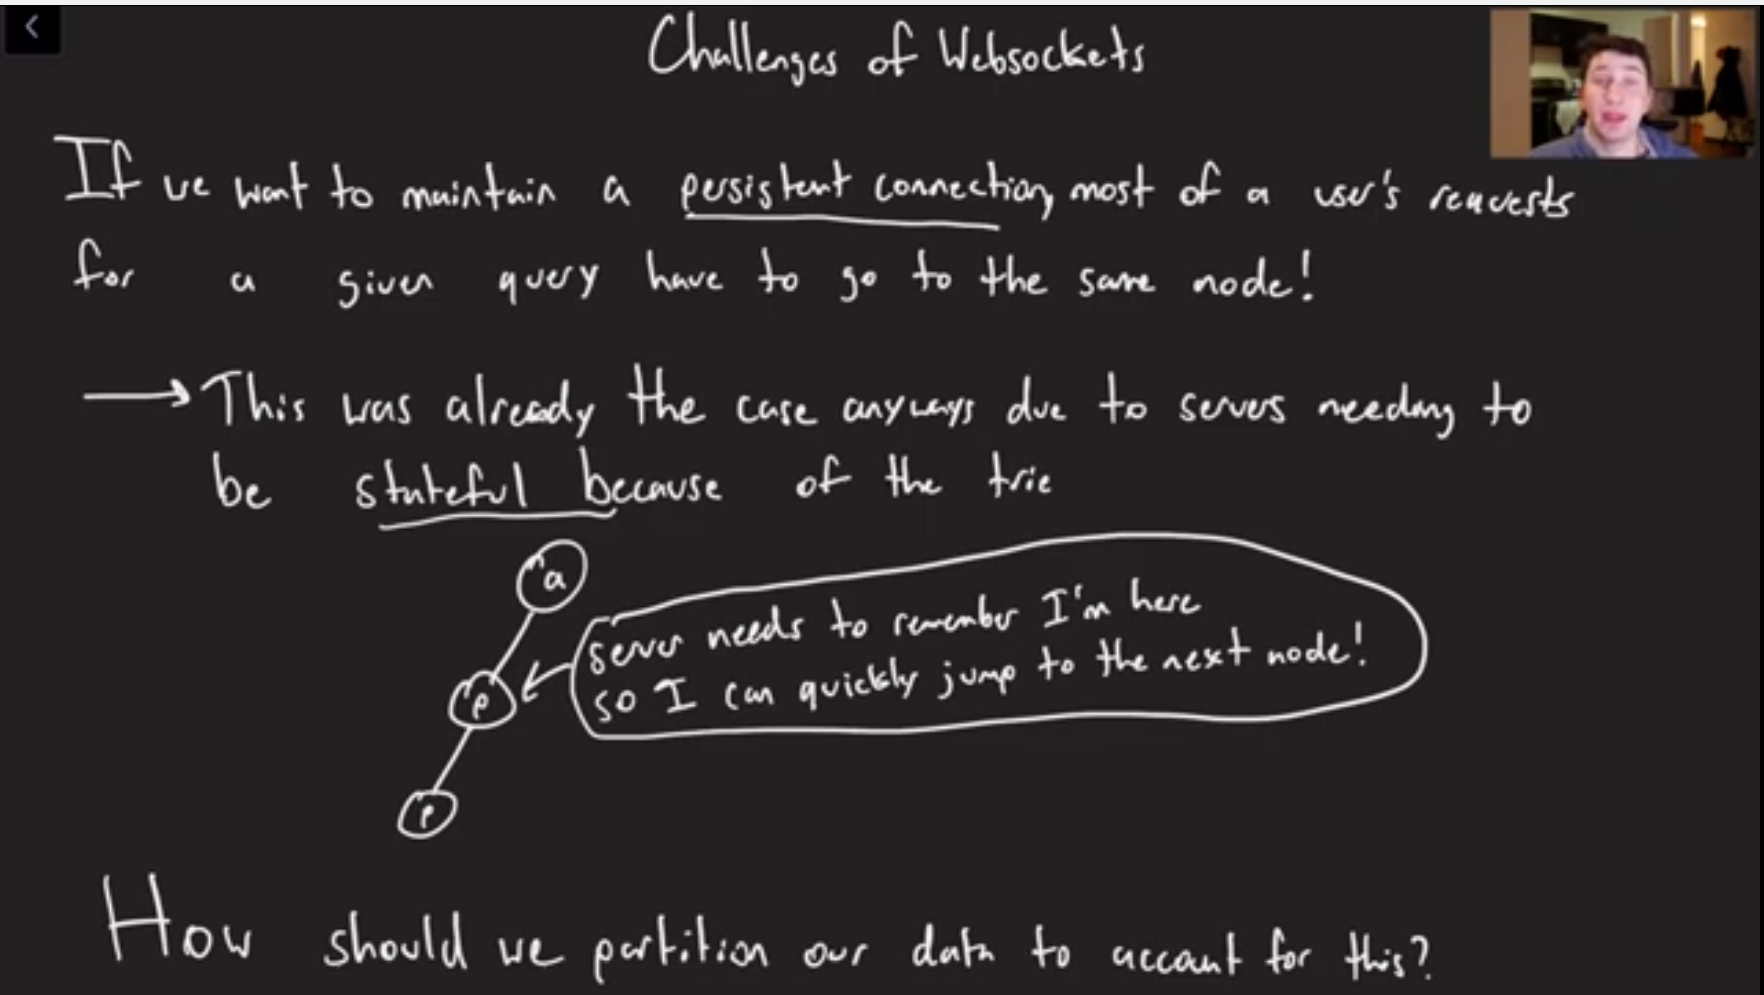 Challenges of Websockets
If we want to maintain a persistent connection, most of a user's requests
for a given query have to go to the same node!
→ This was already the case anyways due to servers needing to
be stateful because of the trie
a
server needs to remember I'm here
so I can quickly jump to the next node!
p
p
How should we partition our data to account for this?